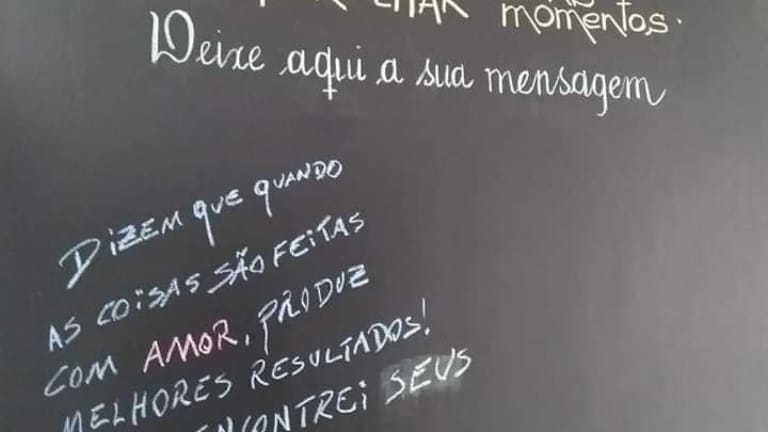 momentos.
Deixe aqui a sua mensagem
DiZEM QUE QUANDO
AS COiSAS SÃO FEiTAS
COM AMOR, PRODUZ
MELHORES RESULTADOS!
ENCONTREi SEUS